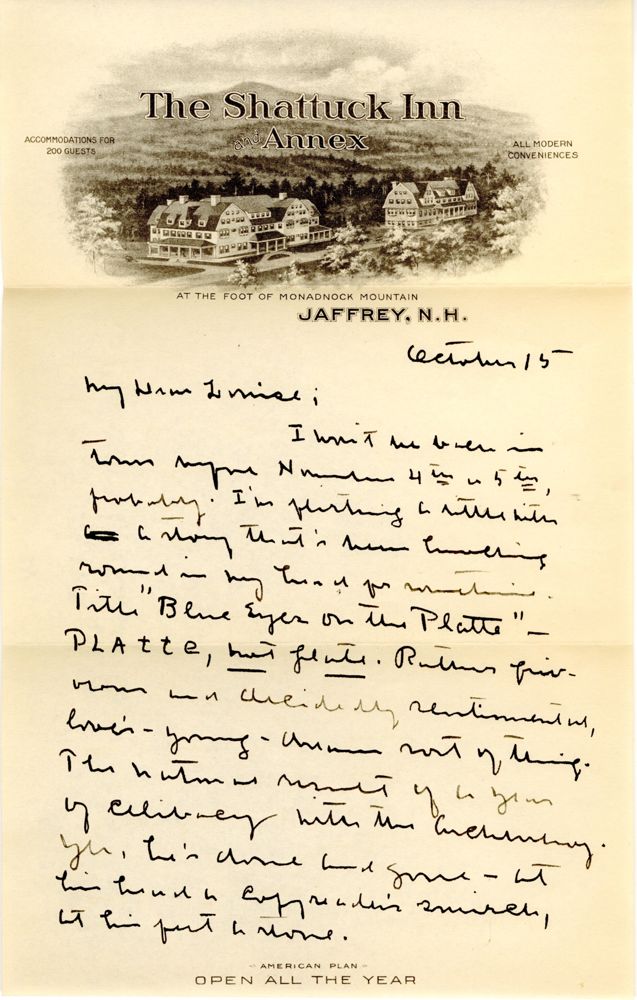 The Shattuck Inn
and Annex
ACCOMMODATIONS FOR
200 GUESTS
ALL MODERN
CONVENIENCES
AT THE FOOT OF MONADNOCK MOUNTAIN
JAFFREY, N.H.
October 15
My Dear Louise;
I won't be back in
town before November 4th or 5th,
probably. I'm flirting a little with
a story that's been knocking
round in my head for sometime.
Title "Blue Eyes on the Platte"—
PLATTE, not plate. Rather friv-
olous and decidedly sentimental,
love's-young-dream sort of thing.
The natural result of a year
of celibacy with the Archbishop.
Yes, he's done and gone—at
his head a copyreader's smirch,
at his feet a stone.
- AMERICAN PLAN -
OPEN ALL THE YEAR